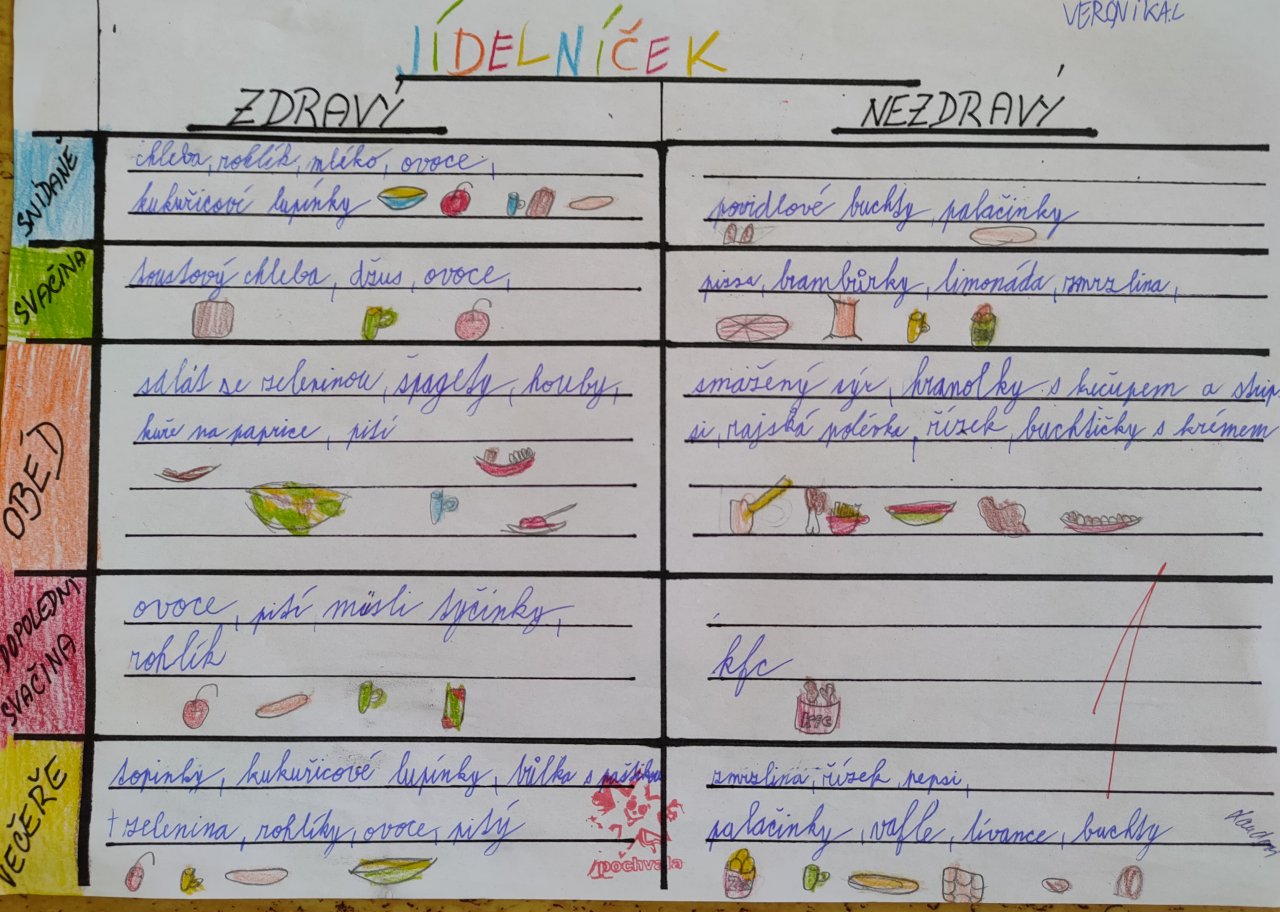 VERONIKA L
JÍDELNÍČEK
ZDRAVÝ
NEZDRAVÝ
SNÍDANĚ
chleba, rohlík, mléko, ovoce,
kukuřicoví lupínky
povidlové buchty, palačinky
SVAČINA
toustový chleba, džus, ovoce,
pizza, brambůrky, limonáda, zmrzlina,
OBĚD
salát se zeleninou, špagety, houby,
kuře na paprice, pití
smažený sýr, hranolky s kečupem a strip
si, rajská polévka, řízek, buchtičky s krémem
DOPOLEDNÍ
SVAČINA
ovoce, pití, müsli tyčinky,
rohlík
kfc
kfc
VEČEŘE
topinky, kukuřicové lupínky, bůlka s paštikou
+ zelenina, rohlíky, ovoce, pitý
zmrzlina, řízek, pepsi,
palačinky, vafle, lívance, buchty
pochvala
1